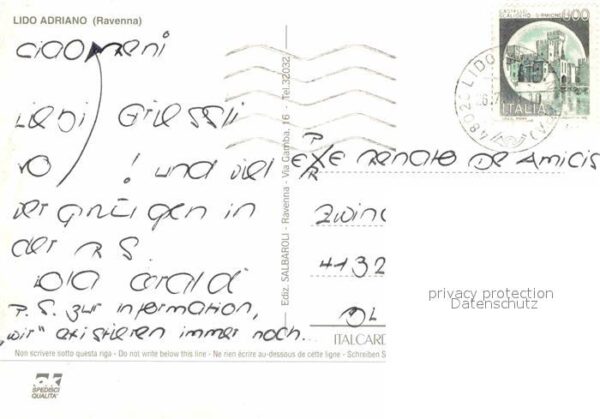 LIDO ADRIANO (Ravenna)
CASTELLO SCALIGERO - SIRMIONE 600
ITALIA
48020 LIDO
ciao
Liebi Grüessli
vo ! und viel
vergnügen in
der RS.
P.S. zur information,
"wir" existieren immer noch...
Ediz. SALBAROLI - Ravenna - Via Gamba, 16 - Tel. 32032
Renato De Amicis
4132
ITALCARD
privacy protection
Datenschutz
Non scrivere sotto questa riga - Do not write below this line - Ne rien écrire au-dessous de cette ligne - Schreiben S
SPEDISCI QUALITA'